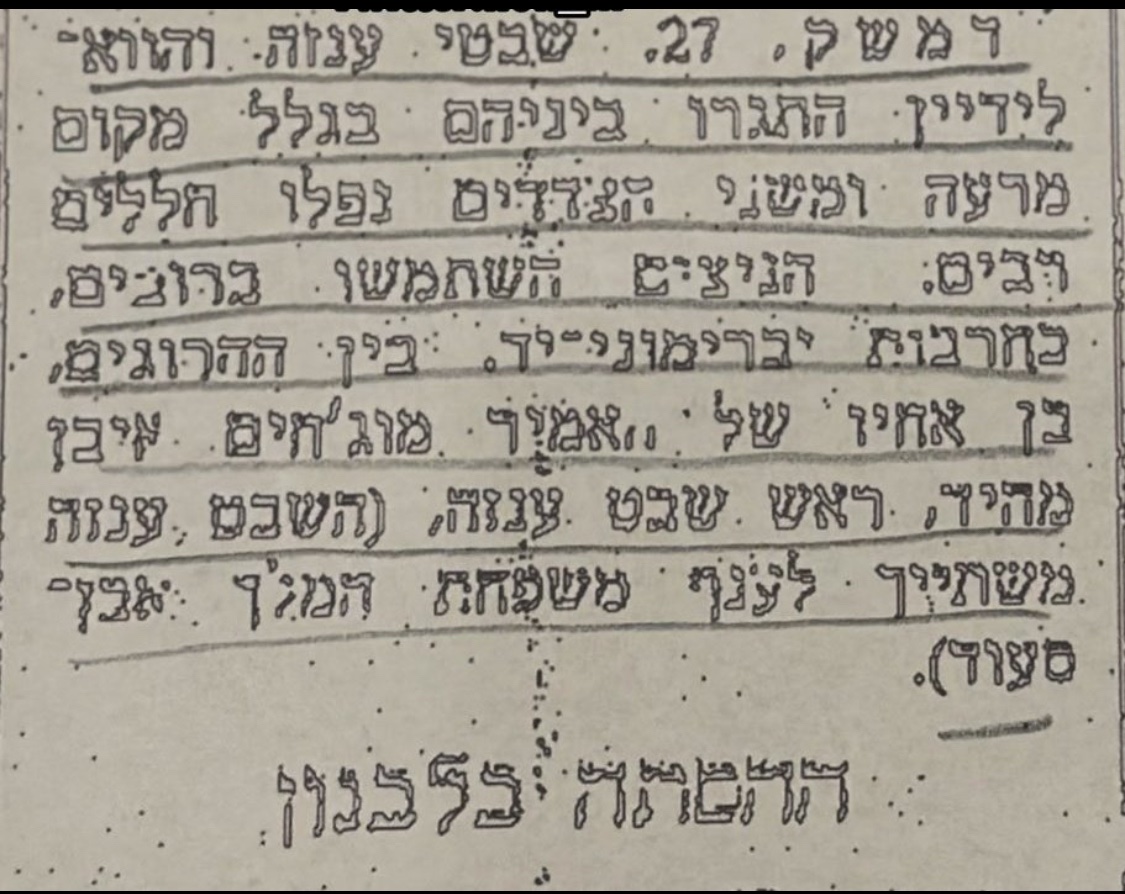 דמשק, 27. שבטי ענזה והווא־
לידיין התגרו ביניהם בגלל מקום
מרעה ומשני הצדדים נפלו חללים
רבים. הניצים השתמשו ברובים,
בחרבות וברימוני־יד. בין ההרוגים,
בן אחיו של „אמיר מוג'חים איבן
מהיד, ראש שבט ענזה, (השבט ענזה
משתייך לענף משפחת המלך אבן־
סעוד).
ההסתה בלבנון